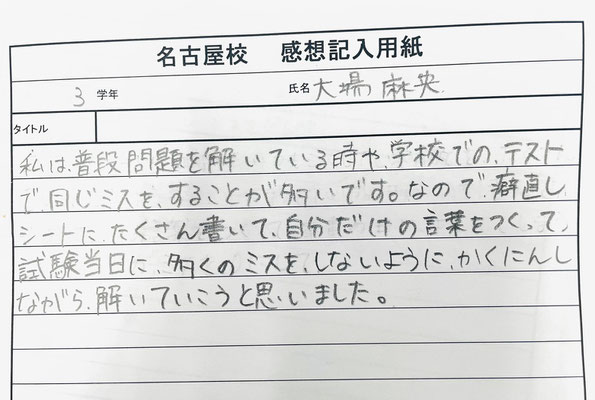 名古屋校 感想記入用紙
3 学年 氏名 大場 麻央
タイトル
私は、普段問題を解いている時や、学校での、テスト
で、同じミスを、することが多いです。なので、癖直し
シートに、たくさん書いて、自分だけの言葉をつくって、
試験当日に、多くのミスを、しないように、かくにんし
ながら、解いていこうと思いました。